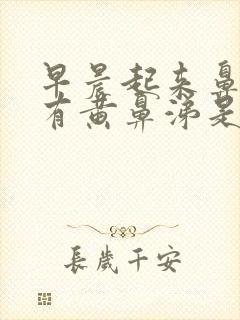 早晨起来鼻
有黄鼻涕是
長歲千安